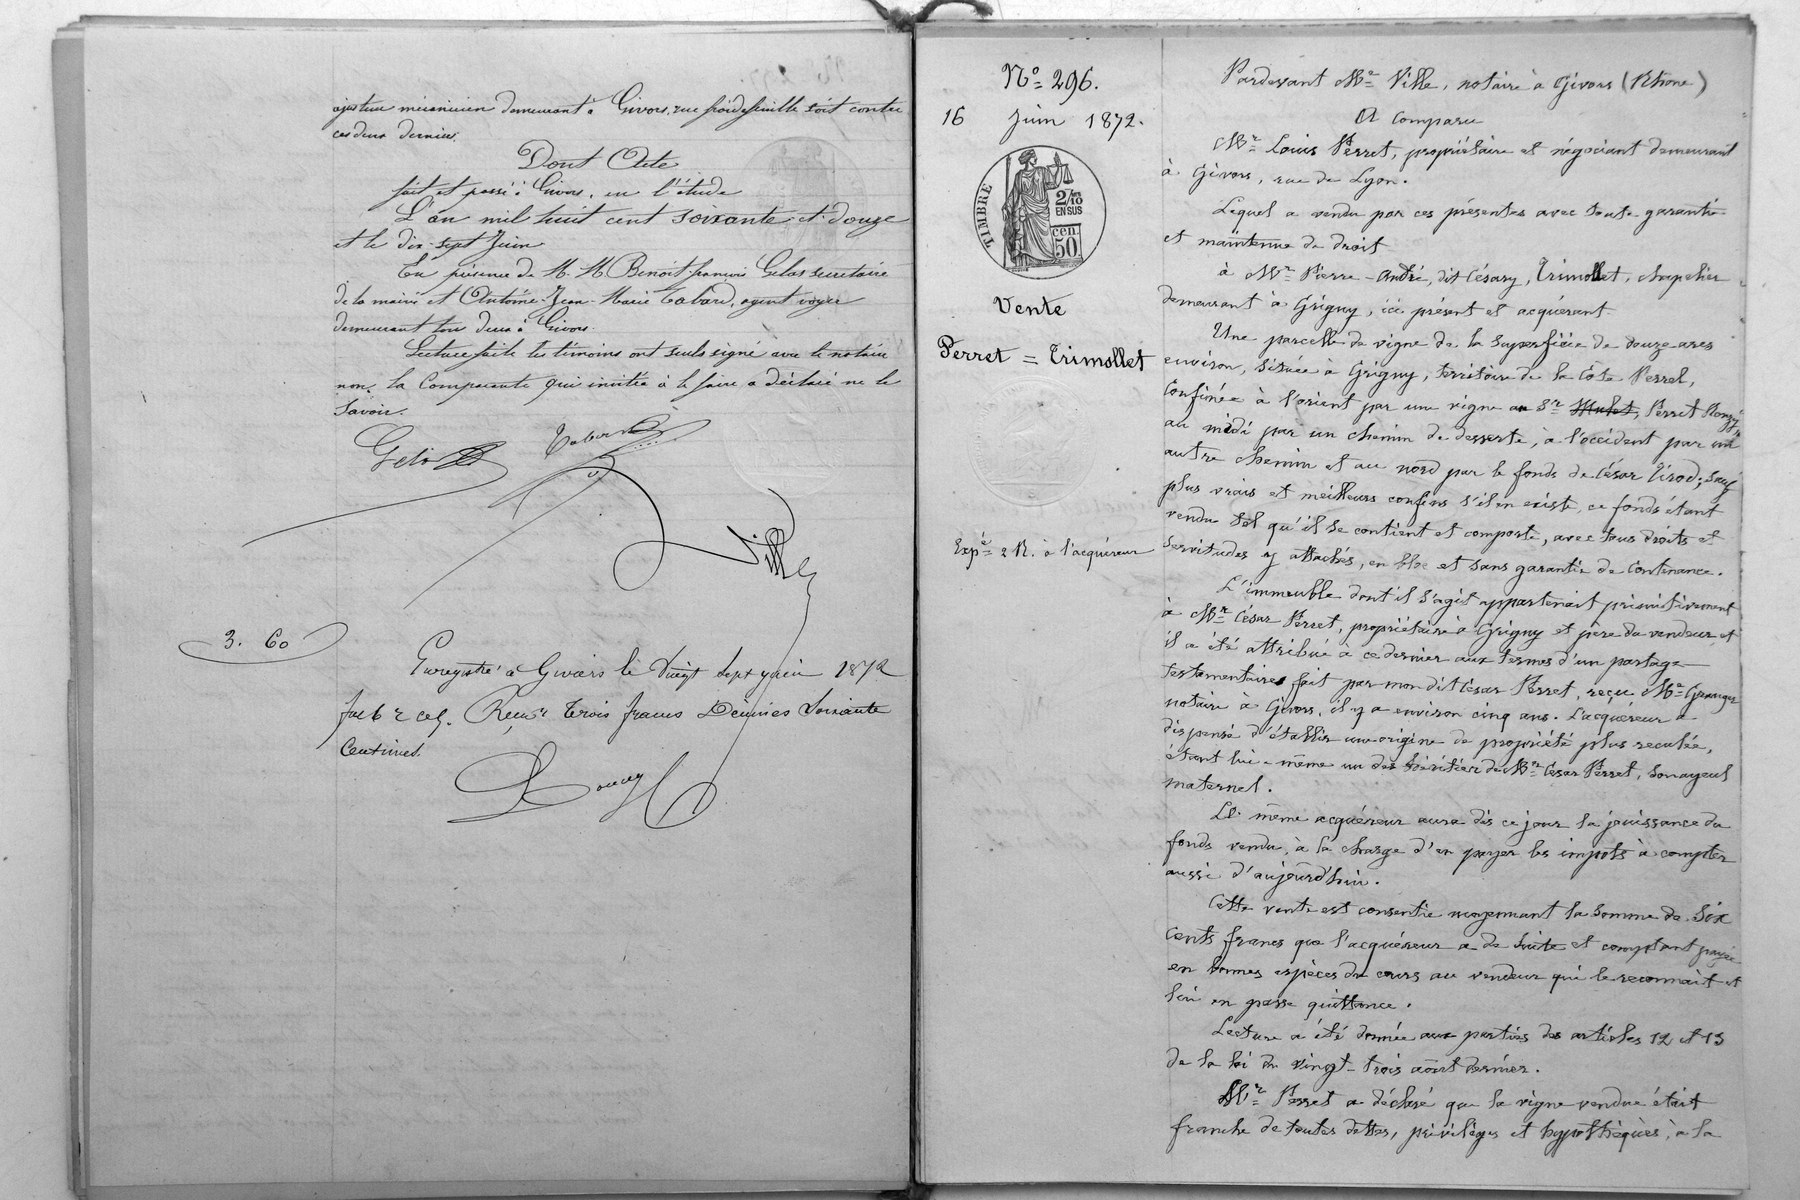 ajusteur mécanicien demeurant à Givors, rue froidefeuille soit contre
ces deux derniers.
Dont Acte
fait et passé à Givors, en l'étude
L'an mil huit cent soixante et douze
et le dix-sept Juin
En présence de M. M Benoit-françois Gelas secrétaire
de la mairie et Antoine-Jean-Marie Tabard, agent voyer
demeurant tous deux à Givors.
Lecture faite les témoins ont seuls signé avec le notaire
non la Comparante qui invitée à le faire a déclaré ne le
Savoir.
Gelas
Tabard
Ville
3. 60
Enregistré à Givors le Vingt Sept juin 1872
Reçu Trois francs Décimes Soixante
Centimes.
Nº 296.
16 Juin 1872.
TIMBRE
2/10
EN SUS
cen.
50
Vente
Perret = Trimollet
Expé 2 R. à l'acquéreur
Pardevant Me Ville, notaire à Givors (Rhône)
A Comparu
Mr Louis Perret, propriétaire et négociant demeurant
à Givors, rue de Lyon.
Lequel a vendu par ces présentes avec toute garantie
et maintenue de droit
à Mr Pierre-André, dit Césary, Trimollet, chapelier
demeurant à Grigny, ici présent et acquérant
Une parcelle de vigne de la superficie de douze ares
environ, située à Grigny, territoire de la Côte Perret,
Confinée à l'orient par une vigne au Sr Mulet, Perret
au midi par un chemin de desserte, à l'occident par un
autre chemin et au nord par le fonds de César Tirod; sauf
plus vrais et meilleurs confins s'il en existe, ce fonds étant
vendu tel qu'il se contient et comporte, avec tous droits et
servitudes y attachés, en bloc et sans garantie de contenance.
L'immeuble dont il s'agit appartenait primitivement
à Mr César Perret, propriétaire à Grigny et père du vendeur et
il a été attribué à ce dernier aux termes d'un partage
testamentaire fait par mon dit César Perret, reçu Me Granger
notaire à Givors, il y a environ cinq ans. L'acquéreur a
dispensé d'établir une origine de propriété plus reculée,
étant lui-même un des héritier de Mr César Perret, son ayeul
maternel.
Le même acquéreur aura dès ce jour la jouissance du
fonds vendu, à la charge d'en payer les impots à compter
aussi d'aujourd'hui.
Cette vente est consentie moyennant la somme de Six
Cents francs que l'acquéreur a de suite et comptant payée
en bonnes espèces du cours au vendeur qui le reconnait et
lui en passe quittance.
Lecture a été donnée aux parties des articles 12 et 13
de la loi du vingt-trois août dernier.
Mr Perret a déclaré que la vigne vendue était
franche de toutes dettes, privilèges et hypothèques, à la